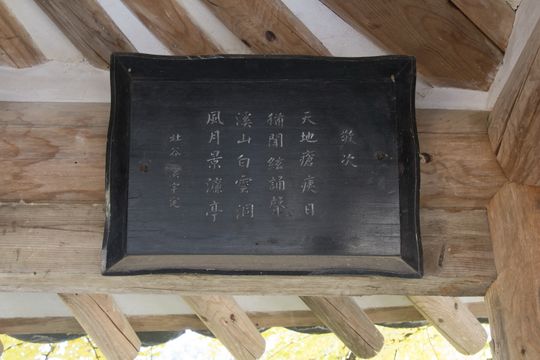 敬次
天地瘡痍日
猶聞絃誦聲
溪山白雲洞
風月景濂亭
北谷